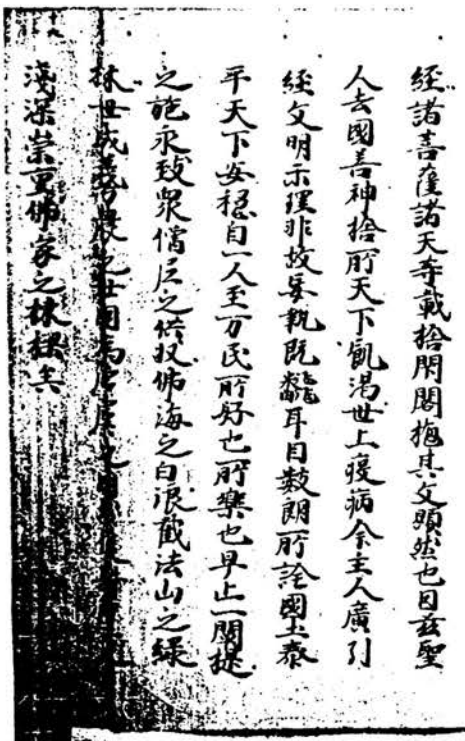 經諸菩薩諸天等載捨閇閣抛其文顕然也因茲聖
人去國善神捨所天下飢渇世上疫病今主人廣引
經文明示理非故妄執既飜耳目數朗所詮國土泰
平天下安穏自一人至万民所好也所樂也早止一闡提
之施永致衆僧尼之供收佛海之白浪截法山之緑
林世成羲農之世國為唐虞之國
淺深崇重佛家之棟梁矣